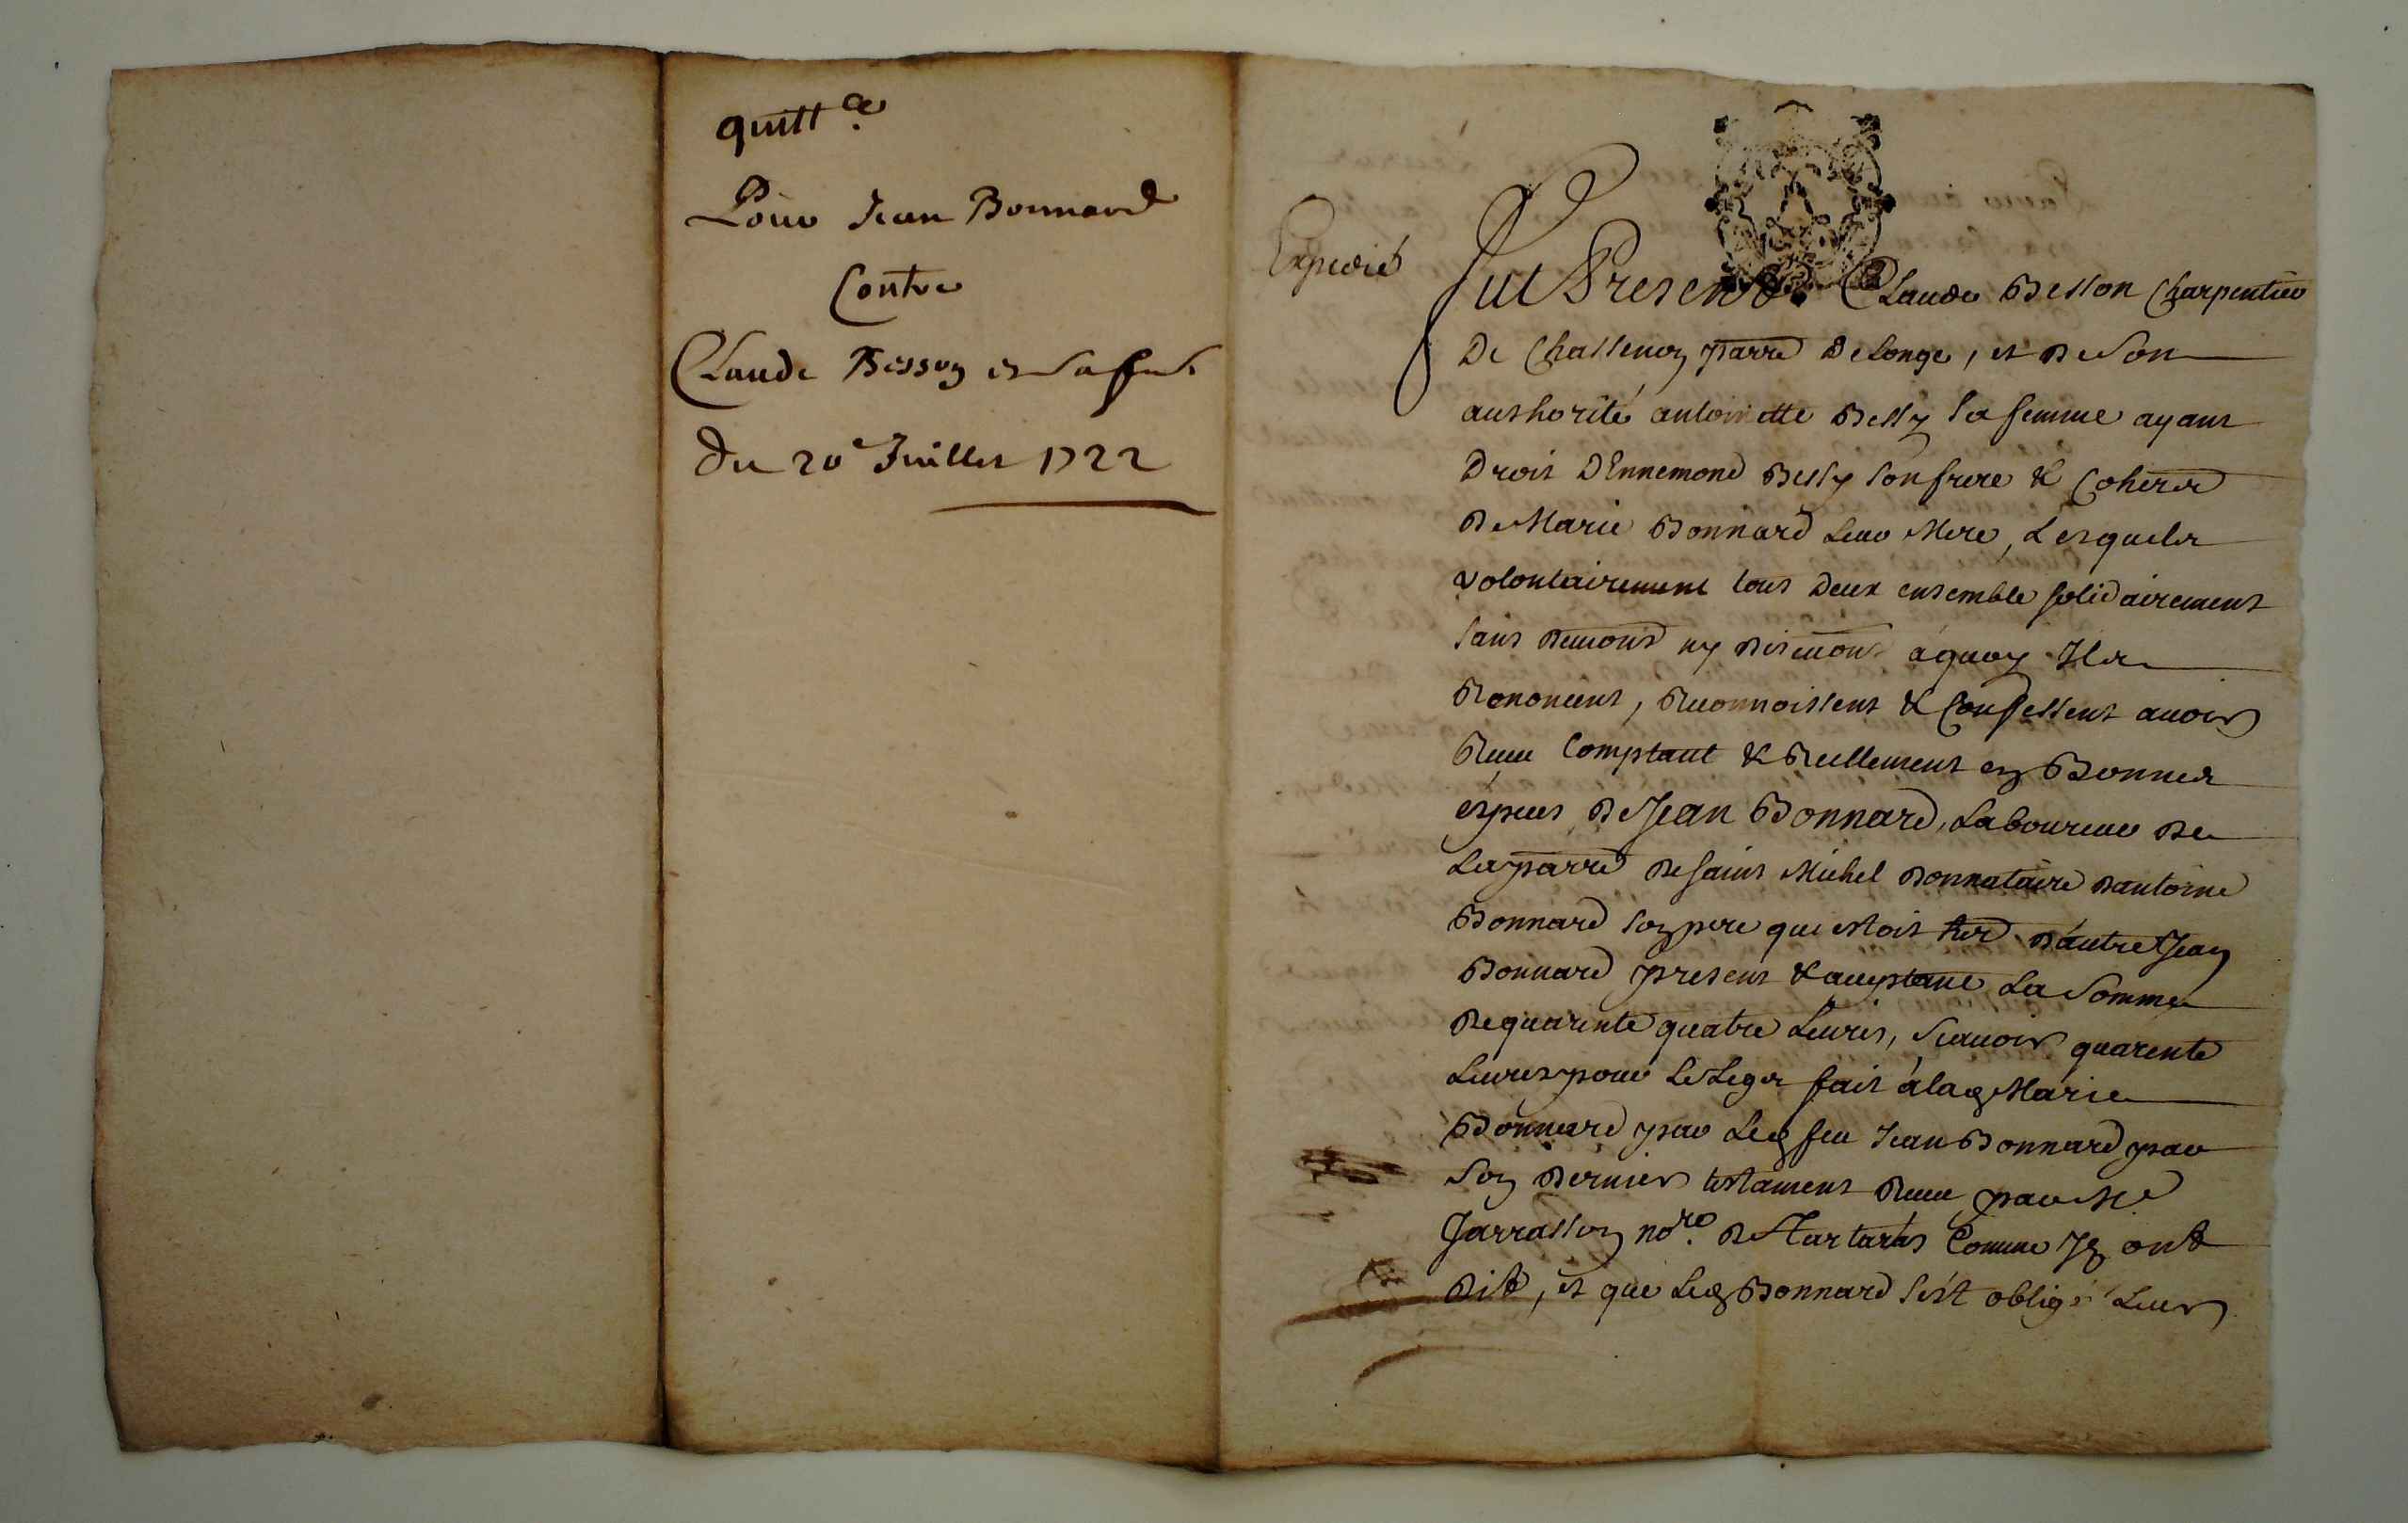 quitt.ce
Pour Jean Bonnard
Contre
Claude Besson et sa fme
du 20e Juillet 1722
Expedié
Fut Present Claude Besson Charpentier
De Chassenoy parre De Longe, et De Son
authorité antoinette Bessy sa femme ayant
Droit DEnnemond Bessy son frere & Coherer
De Marie Bonnard Leur Mere, Lesquels
volontairement tous Deux ensemble solidairement
sans ny à quoy Ils
Renoncent, Reconnoissent & Confessent avoir
Reçeu Comptant & Reellement en Bonnes
especes De Jean Bonnard, Laboureur De
La parre De saint Michel Donnataire Dantoine
Bonnard son pere qui estoit her Dautre Jean
Bonnard present & acceptant La Somme
De quarente quatre Livres, Scavoir quarente
Livres pour Le Legs fait à lad Marie
Bonnard par Led feu Jean Bonnard par
Son Dernier testament Reçeu par Me
Jarrasson nore. De Tartaras Comme Ils ont
Dit, et que Led Bonnard s'est obligé Leur